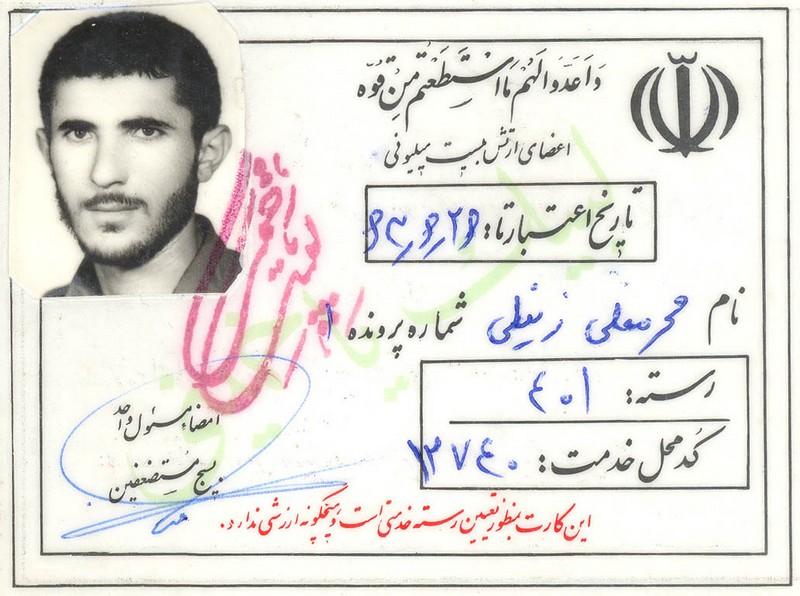 وَاَعِدُّوا لَهُم مَا اسْتَطَعْتُم مِن قُوَّه
اعضای ارتش بیست میلیونی
تاریخ اعتبار تا:
نام محرمعلی شماره پرونده ۱
رسته: ۴۰۱
کد محل خدمت: ۱۳۷۴۰
امضاء مسئول واحد
بسیج مستضعفین
این کارت بمنظور تعیین رسته خدمتی است و هیچگونه ارزشی ندارد.